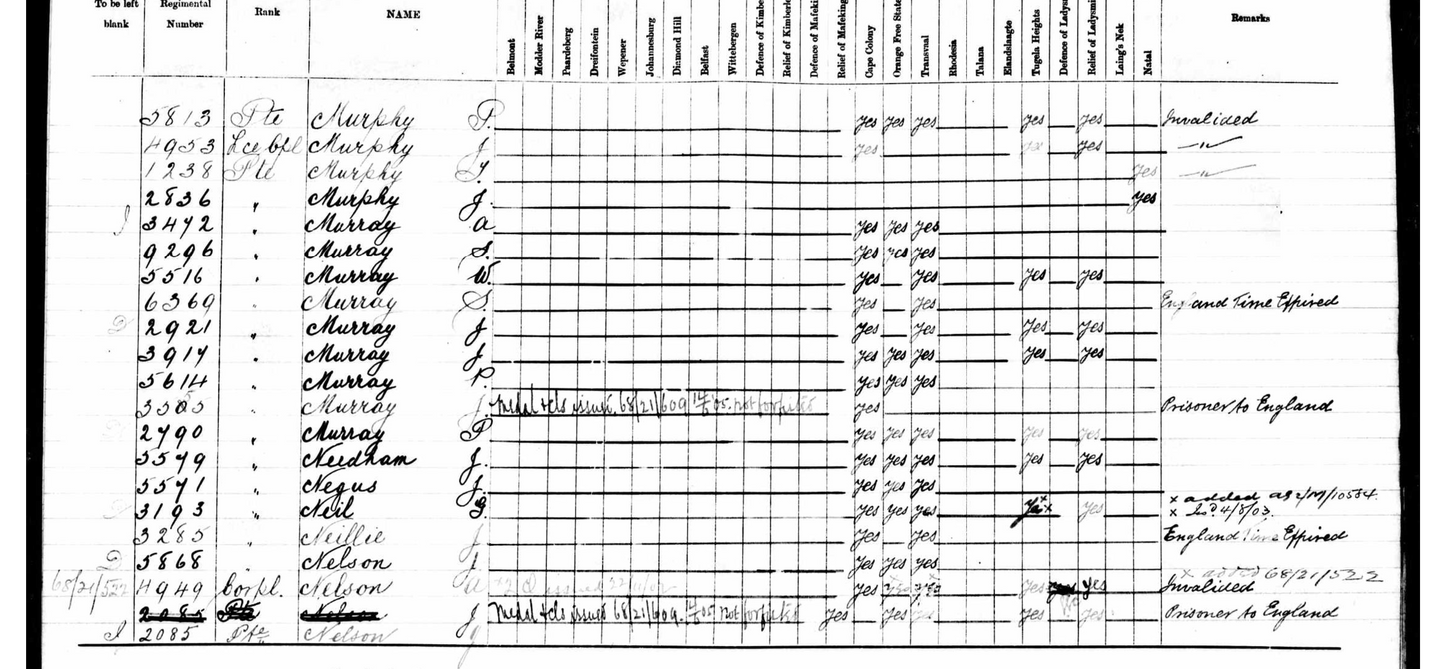 To be left blank Regimental Number Rank NAME Belmont Modder River Paardeberg Dreifontein Wepener Johannesburg Diamond Hill Belfast Wittebergen Defence of Kimbe Relief of Kimberle Defence of Mafeking Relief of Mafeking Cape Colony Orange Free State Transvaal Rhodesia Talana Elandslaagte Tugela Heights Defence of Ladysmi Relief of Ladysmi Laing's Nek Natal Remarks
5813 Pte Murphy P. Yes Yes Yes Yes Yes Invalided
4953 Lce Cpl Murphy J Yes Yes "
1238 Pte Murphy T. Yes "
2836 " Murphy J. Yes
3472 " Murray A Yes Yes Yes
9296 " Murray S. Yes Yes Yes
5516 " Murray W. Yes Yes Yes Yes
6369 " Murray S. Yes Yes England Time Expired
2921 " Murray J Yes Yes Yes Yes
3914 " Murray J. Yes Yes Yes Yes Yes
5614 " Murray P. Yes Yes Yes
3505 " Murray J. Medal & cls issued 68/21/609 05. not forfeited Yes Prisoner to England
2790 " Murray P Yes Yes Yes Yes Yes
5579 " Needham J. Yes Yes Yes Yes Yes
5571 " Negus J. Yes Yes Yes
3193 " Neil G Yes Yes Yes Yes x Yes x added 4/8/03.
3285 " Neillie J Yes Yes England Time Expired
D 5868 Nelson J. Yes Yes Yes
x added 68/21/522
68/21/522 4949 Corpl. Nelson A Yes Yes Yes Yes Yes Invalided
2085 Pte Nelson J Medal & cls issued 68/21/609. 05 not forfeited Yes Yes Yes Yes Yes Prisoner to England
2085 Pte Nelson